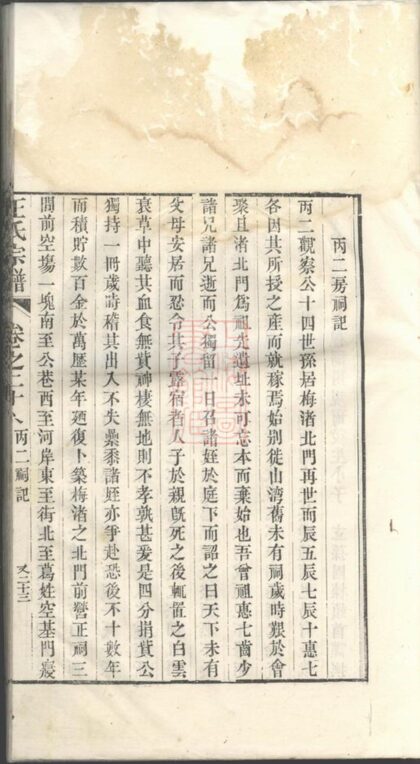 丙二房祠記
丙二觀察公十四世孫居梅渚北門再世而辰五辰七辰十惠七
各因其所授之産而就稼焉始别徙山灣舊未有祠歲時艱於會
聚且渚北門爲祖先遺址未可忘本而棄始也吾曾祖惠七齒少
諸兄諸兄逝而公獨留一日召諸姪於庭下而詔之曰天下未有
父母安居而忍令其子露宿者人子於親旣死之後輒置之白雲
衰草中聽其血食無貲神棲無地則不孝孰甚爰是四分捐貲公
獨持一冊歲時稽其出入不失纍黍諸姪亦爭赴恐後不十數年
而積貯數百金於萬歷某年廼復卜築梅渚之北門前營正祠三
間前空塲一塊南至公巷西至河岸東至街北至葛姓空基門
氏宗譜
卷之二十八
丙二祠記
又二十三